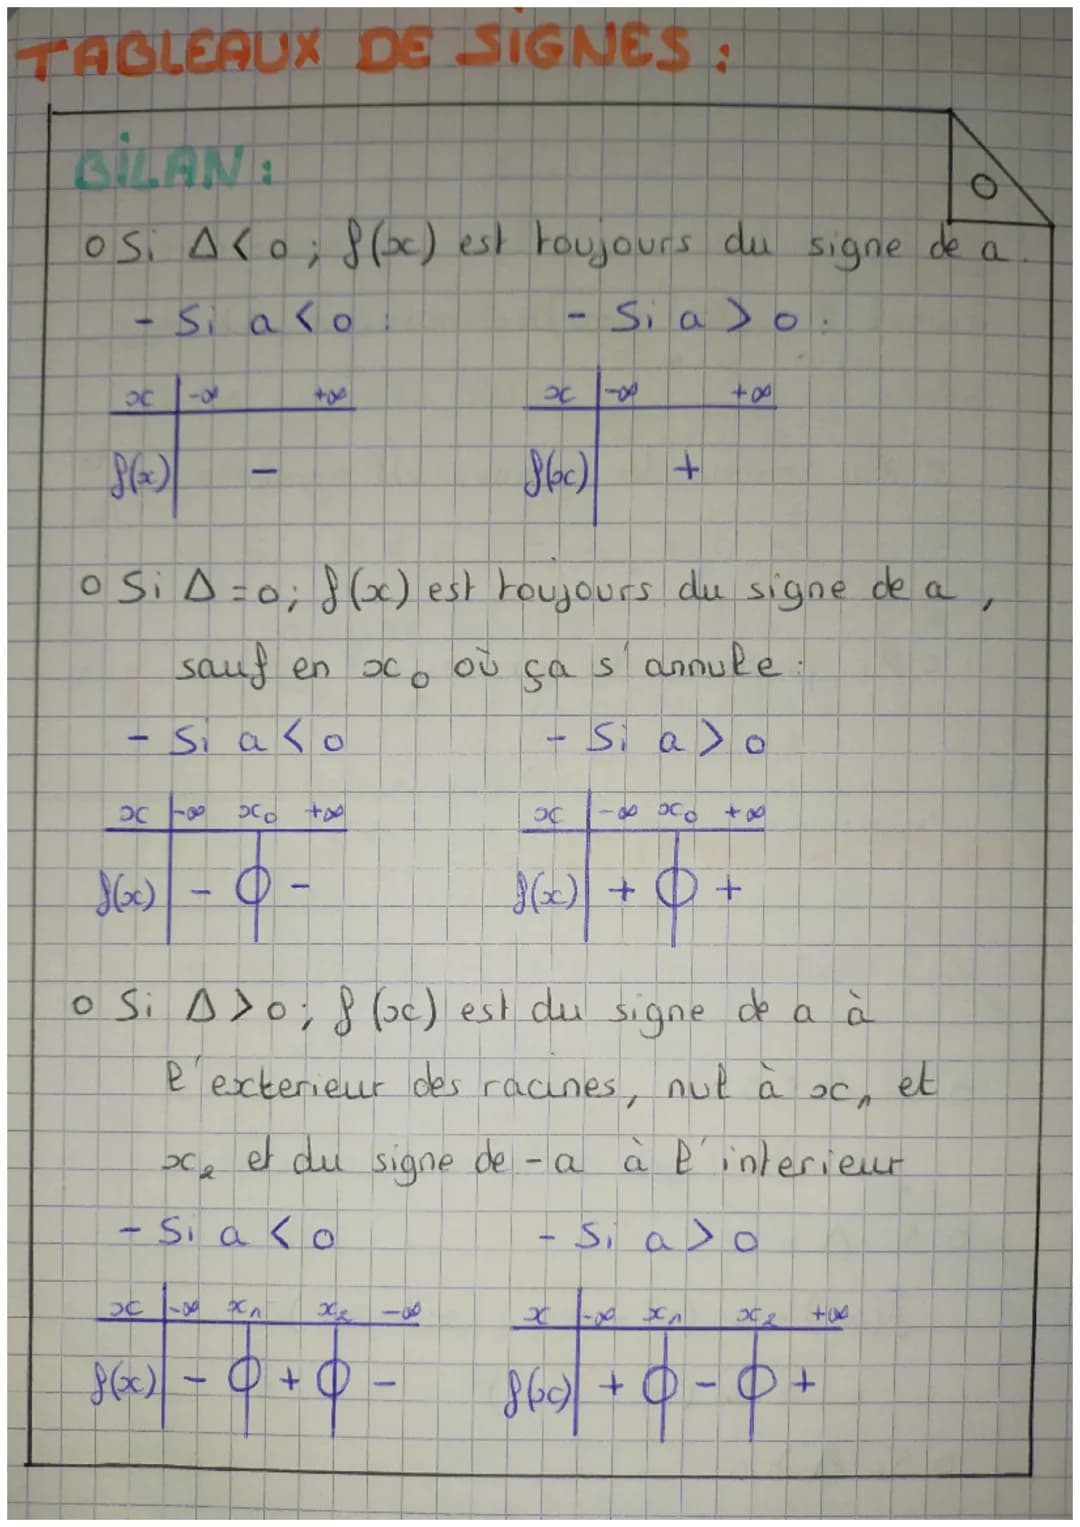 TABLEAUX DE SIGNES :
BILAN :
o Si Δ < 0 ; f(x) est toujours du signe de a.
- Si a < 0 : - Si a > 0 :
x -∞ +∞ x -∞ +∞
f(x) - f(x) +
o Si Δ = 0 ; f(x) est toujours du signe de a,
sauf en x₀ où ça s'annule :
- Si a < 0 - Si a > 0
x -∞ x₀ +∞ x -∞ x₀ +∞
f(x) - 0 - f(x) + 0 +
o Si Δ > 0 ; f(x) est du signe de a à
l'exterieur des racines, nul à x₁ et
x₂ et du signe de -a à l'interieur
- Si a < 0 - Si a > 0
x -∞ x₁ x₂ -∞ x -∞ x₁ x₂ +∞
f(x) - 0 + 0 - f(x) + 0 - 0 +